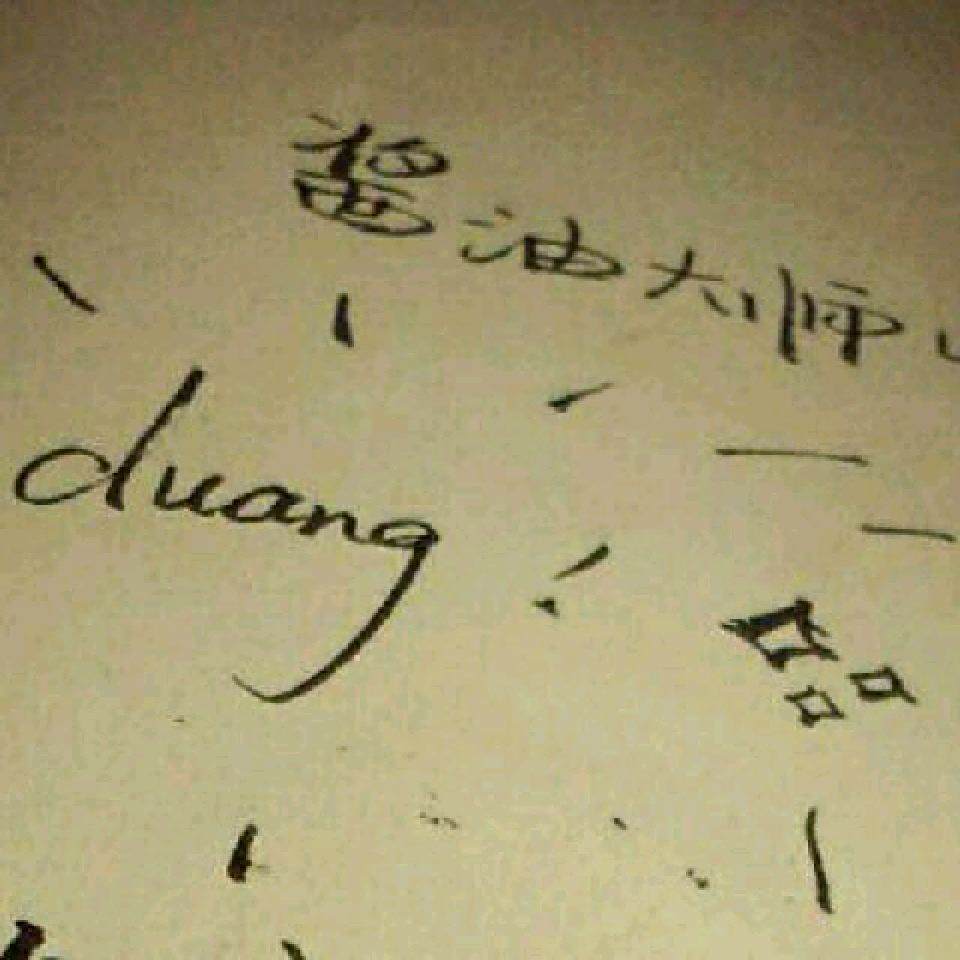 酱油大师
duang!